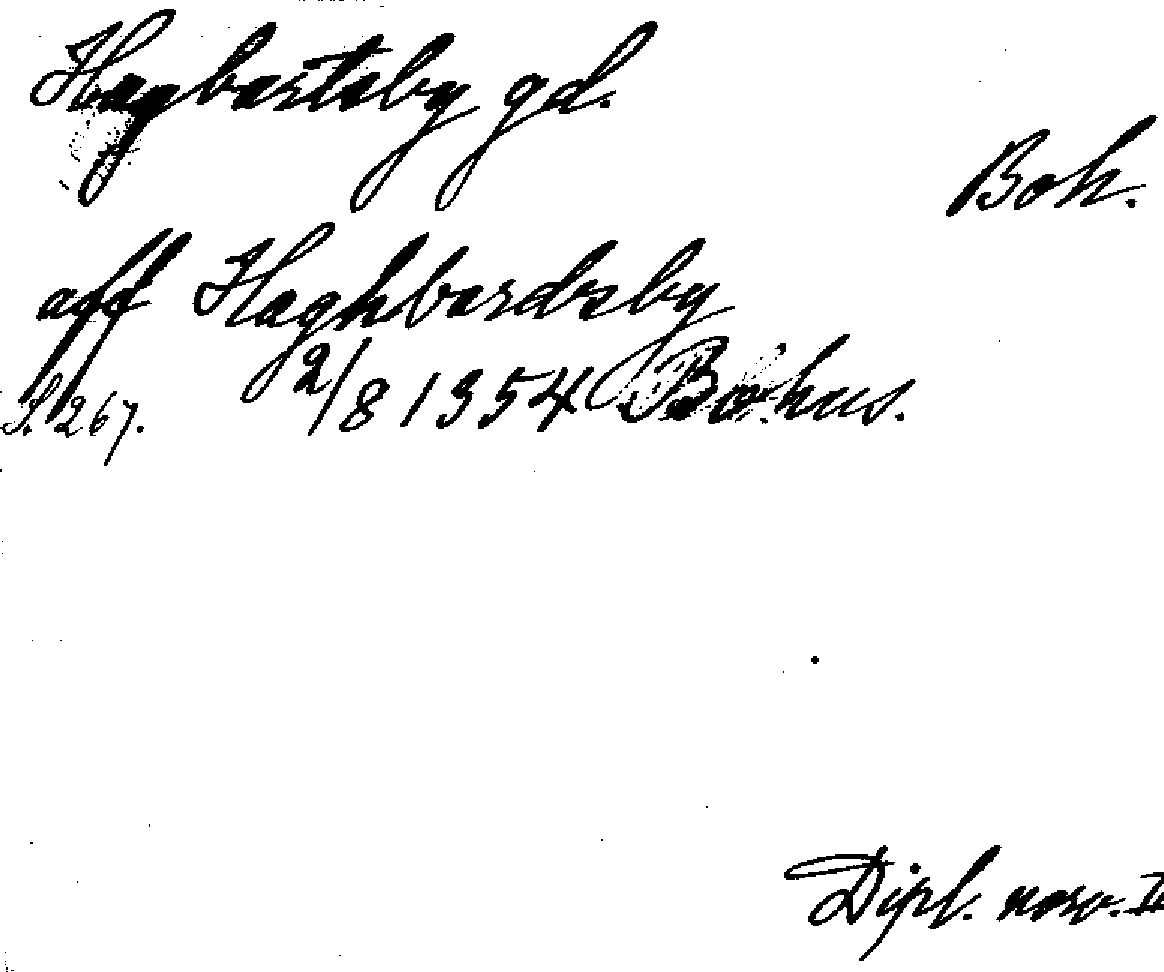 Hagbartsby gd.
Boh.
aff Haghbardsby
S. 267. 2/8 1354 Bohus.
Dipl. norv. II